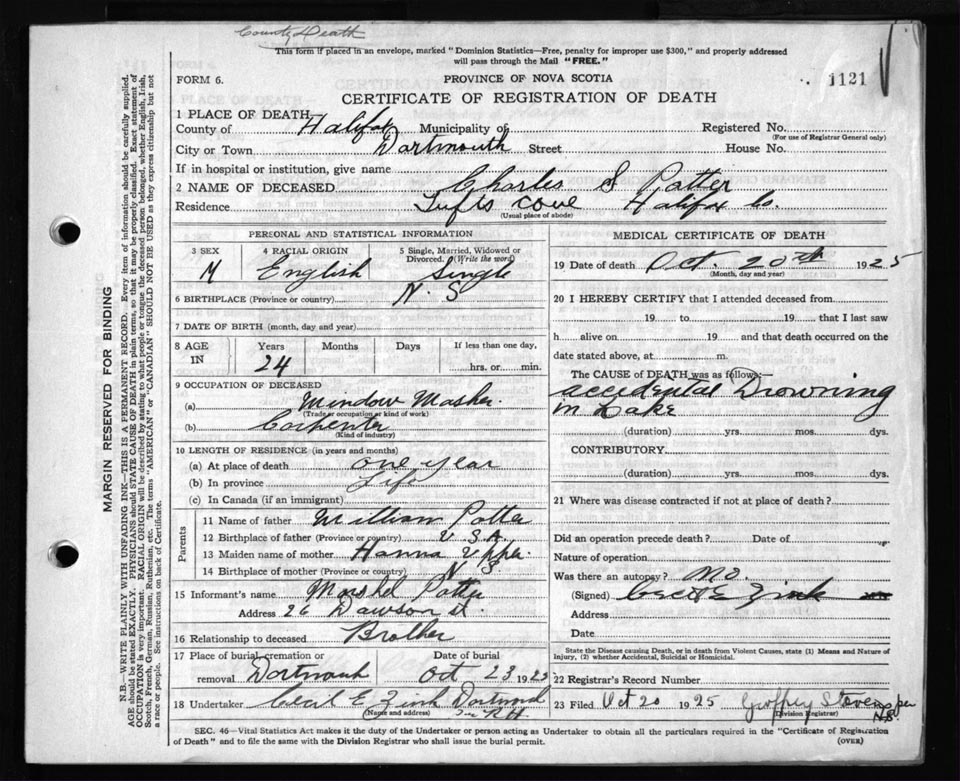 County Death
This form if placed in an envelope, marked "Dominion Statistics—Free, penalty for improper use $300," and properly addressed
will pass through the Mail "FREE."
FORM 6.
PROVINCE OF NOVA SCOTIA
1121
CERTIFICATE OF REGISTRATION OF DEATH
1 PLACE OF DEATH
County of Halifax Municipality of Registered No.
(For use of Registrar General only)
City or Town Dartmouth Street House No.
If in hospital or institution, give name
2 NAME OF DECEASED Charles S Potter
Residence Tufts Cove Halifax Co.
(Usual place of abode)
PERSONAL AND STATISTICAL INFORMATION
3 SEX 4 RACIAL ORIGIN 5 Single, Married, Widowed or
Divorced. (Write the word)
M English Single
6 BIRTHPLACE (Province or country) N. S
7 DATE OF BIRTH (month, day and year)
8 AGE IN Years Months Days If less than one day,
24 hrs. or min.
9 OCCUPATION OF DECEASED
(a) Window Masher
(Trade or occupation or kind of work)
(b) Carpenter
(Kind of industry)
10 LENGTH OF RESIDENCE (in years and months)
(a) At place of death one year
(b) In province Life
(c) In Canada (if an immigrant)
Parents
11 Name of father William Potter
12 Birthplace of father (Province or country) U.S.A.
13 Maiden name of mother Hanna
14 Birthplace of mother (Province or country) N S.
15 Informant's name Marshel Potter
Address 26 Dawson st.
16 Relationship to deceased Brother
17 Place of burial, cremation or Date of burial
removal Dartmouth Oct 23 1925
18 Undertaker Cecil E Zink Dartmouth
(Name and address)
MEDICAL CERTIFICATE OF DEATH
19 Date of death Oct. 20th 1925
(Month, day and year)
20 I HEREBY CERTIFY that I attended deceased from
19 to 19 that I last saw
h alive on 19 and that death occurred on the
date stated above, at m.
The CAUSE of DEATH was as follows:—
accidental Drowning
in Lake
(duration) yrs. mos. dys.
CONTRIBUTORY
(duration) yrs. mos. dys.
21 Where was disease contracted if not at place of death?
Did an operation precede death? Date of
Nature of operation
Was there an autopsy? No.
(Signed) Cecil E Zink
Address
Date
State the Disease causing Death, or in death from Violent Causes, state (1) Means and Nature of
Injury, (2) whether Accidental, Suicidal or Homicidal.
22 Registrar's Record Number
23 Filed Oct 20 1925 Geoffrey Stevens per
(Division Registrar)
SEC. 46—Vital Statistics Act makes it the duty of the Undertaker or person acting as Undertaker to obtain all the particulars required in the "Certificate of Registration
of Death" and to file the same with the Division Registrar who shall issue the burial permit.
(OVER)
MARGIN RESERVED FOR BINDING
N.B.—WRITE PLAINLY WITH UNFADING INK—THIS IS A PERMANENT RECORD. Every item of information should be carefully supplied.
AGE should be stated EXACTLY. PHYSICIANS should STATE CAUSE OF DEATH in plain terms, so that it may be properly classified. Exact statement of
OCCUPATION is very important. RACIAL ORIGIN will be described by stating to what people or tongue the deceased person belonged, whether English, Irish,
Scotch, French, German, Russian, Ruthenian, etc. The terms "AMERICAN" or "CANADIAN" SHOULD NOT BE USED as they express citizenship but not
a race or people. See instructions on back of Certificate.